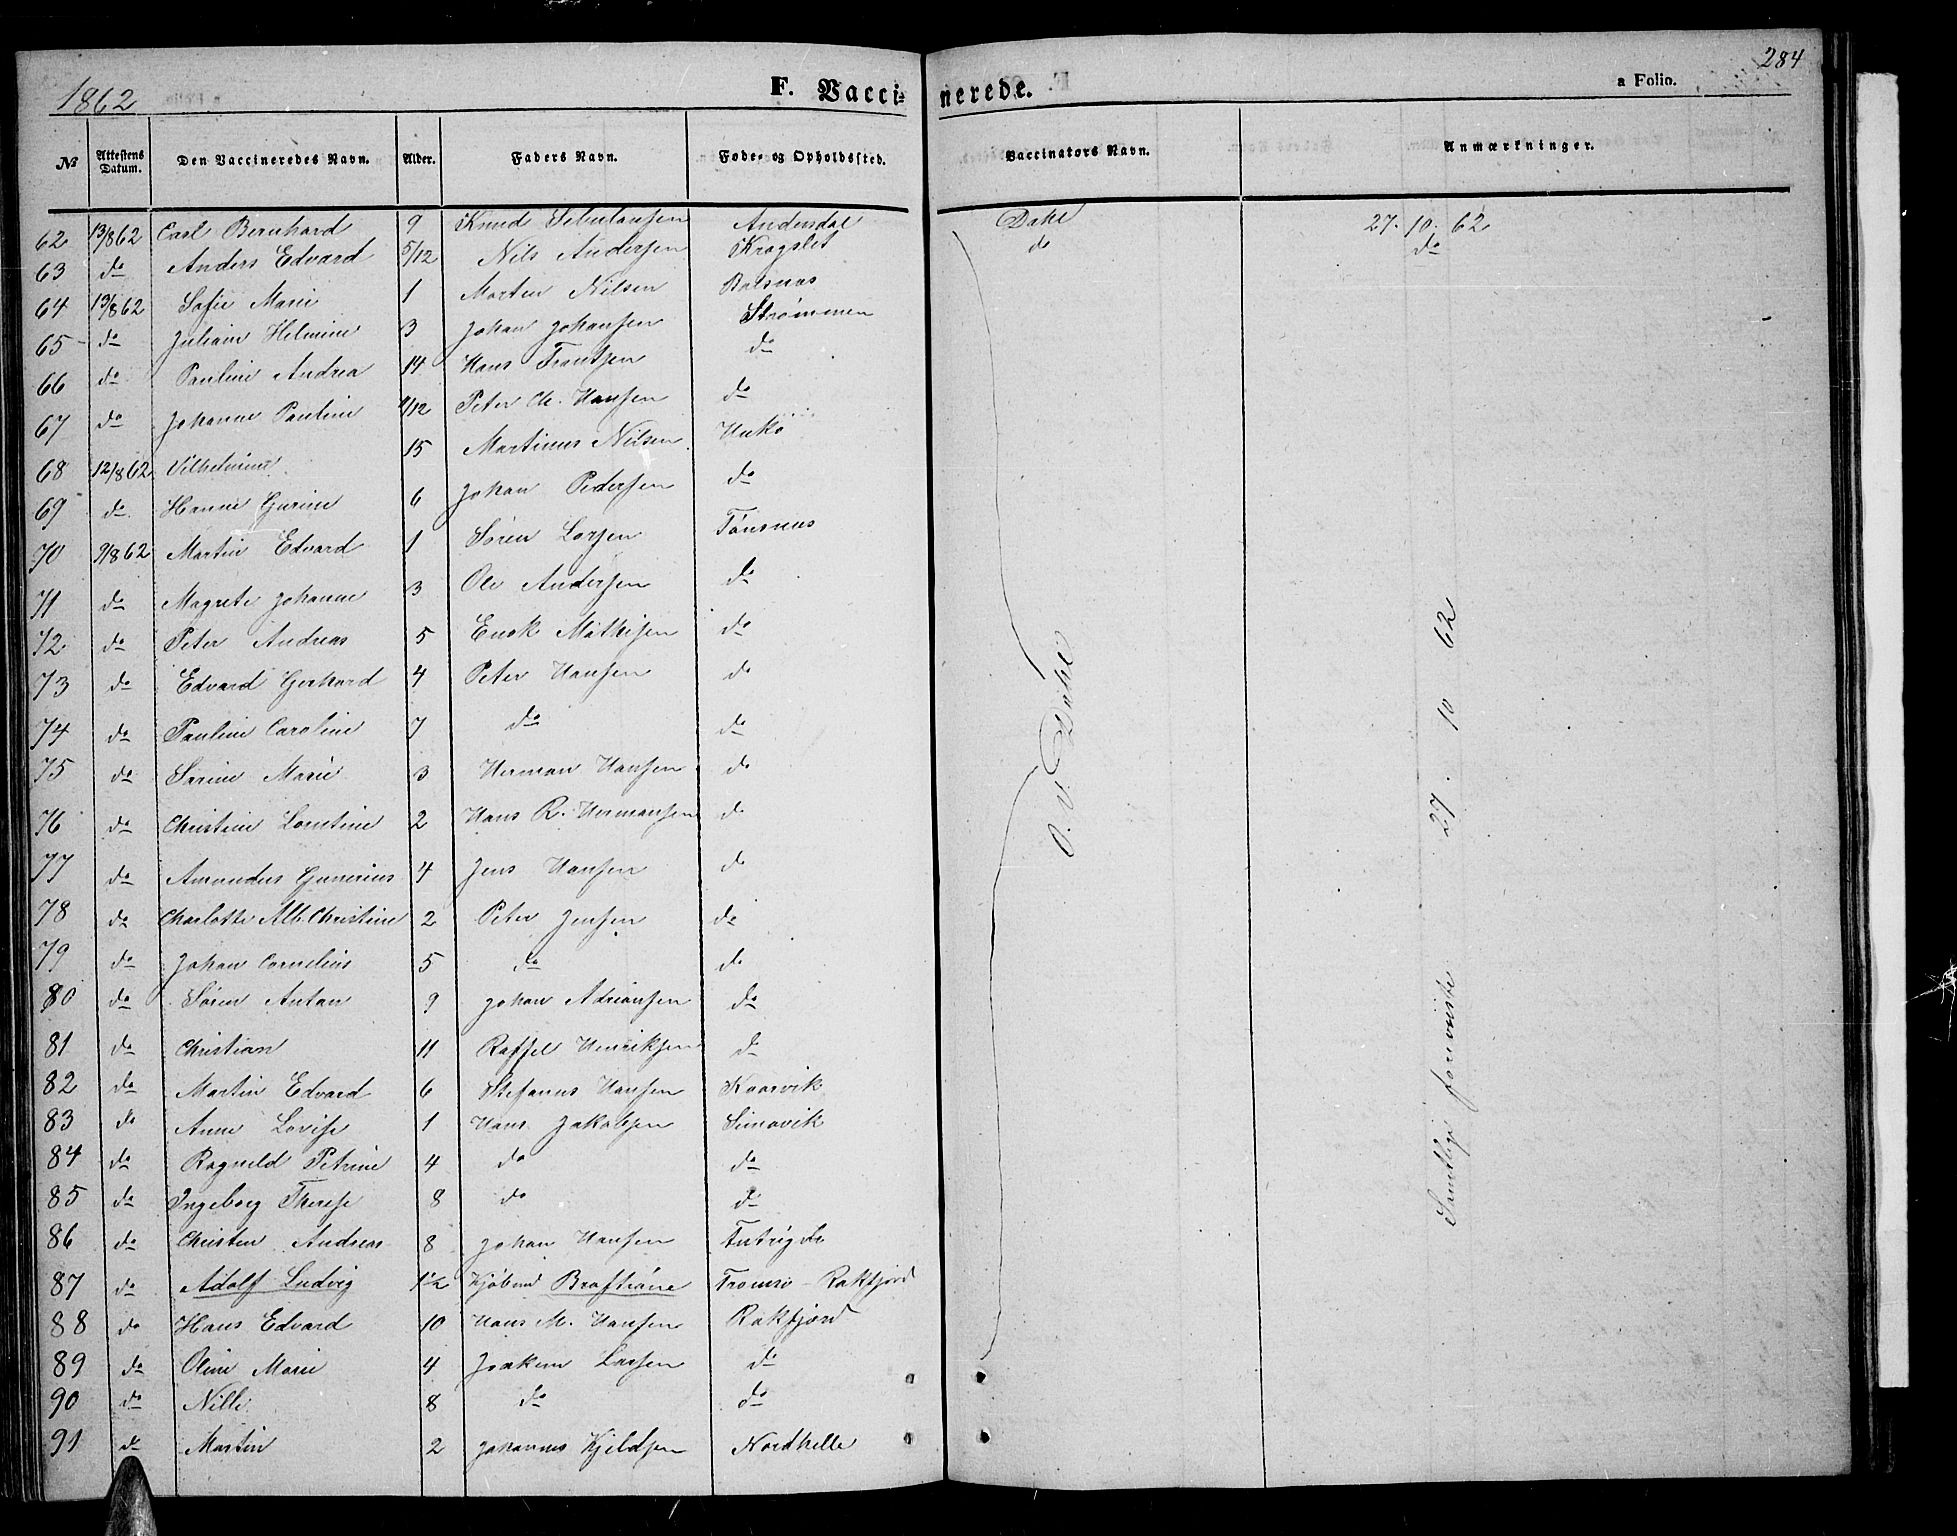 284
1862
F. Vaccinerede.
a Folio.
No Attestens Datum. Den Vaccineredes Navn. Alder. Faders Navn. Føde- og Opholdssted. Vaccinators Navn. Anmærkninger.
62 13/8 62 Carl Bernhard 9 Knud Andersdal Dahl 27. 10. 62
63 do Anders Edvard 5/12 Nils Andersen Kragslet do do
64 13/8 62 Sofie Marie 1 Morten Nilsen Balsnæs
65 do Juliane Helmine 3 Johan Johansen Strømmen
66 do Pauline Andrea 14 Hans Frantzen do
67 do Johanne Pauline /12 Peter Chr. Hansen do
68 12/8 62 Vilhelmine 15 Martinus Nilsen
69 do Hanne Gurine 6 Johan Pedersen do
70 9/8 62 Martin Edvard 1 Søren Larsen Tønsnæs
71 do Magrete Johanne 3 Ole Andersen do
72 do Peter Andreas 5 Enok Mathisen do
73 do Edvard Gerhard 4 Peter Hansen do
74 do Pauline Caroline 7 do do
75 do Sørine Marie 3 Herman Hansen do
76 do Christine Lorntine 2 Hans R. Hermansen do
77 do Amandus Gunerius 4 Jens Hansen do
78 do Charlotte Alb. Christine 2 Peter Jensen do
79 do Johan Cornelius 5 do do
80 do Søren Antan 9 Johan Adriansen do
81 do Christian 11 Raffel Henriksen do
82 do Martin Edvard 6 Stefanus Hansen Kaarvik
83 do Anne Lovise 1 Hans Jakobsen Simavik
84 do Ragnild Petrine 4 do do
85 do Ingeborg Therese 8 do do
86 do Christen Andreas 8 Johan Hansen
87 do Adolf Ludvig 1 1/2 Kjøbmd Tromsø - Rakfjord
88 do Hans Edvard 10 Hans M. Hansen Rakfjord
89 do Oline Marie 4 Joakim Larsen do
90 do Nille 8 do do
91 do Martin 2 Johannes Kjeldsen Nordhelle
O. V. Dahl
Samtlige foreviste 27. 10 62